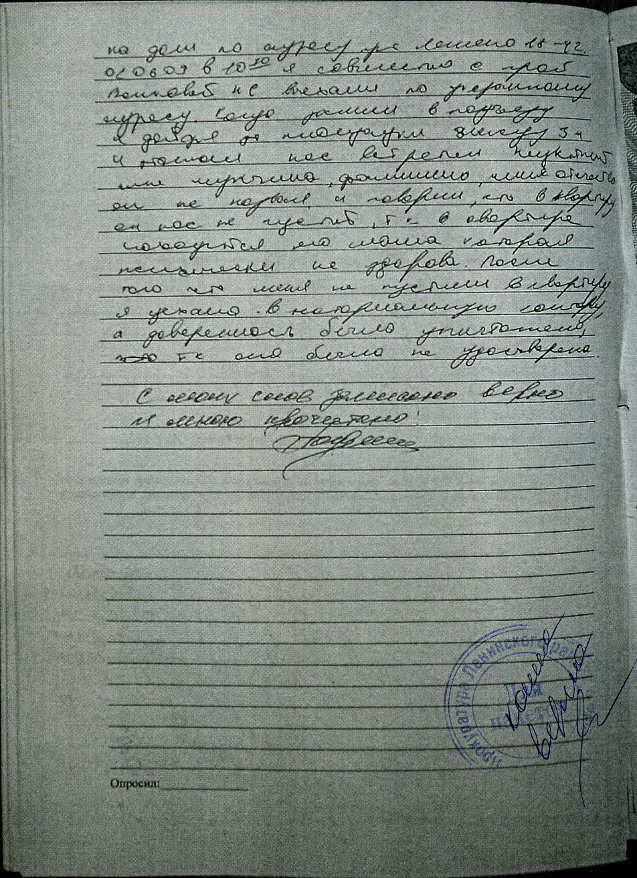 на дом по адресу пр Ленина 18-42
010609 в 10 10 я совместно с гр-ой
НС выехали по указанному
адресу. Когда зашли в подъезд
я дойдя до площадки между 3 и
4 этажом нас встретил неизвестный
мне мужчина, фамилию, имя отчество
он не назвал и говорил, что в квартиру
он нас не пустит, т.к. в квартире
находится его мама которая
психически не здорова. После
того что меня не пустили в квартиру
я уехала в нотариальную контору,
а доверенность была уничтожена,
т.к. она была не удостоверена.
С моих слов записано верно
и мною прочитано
Прокуратура Ленинского
Для
копия
верна
Опросил: